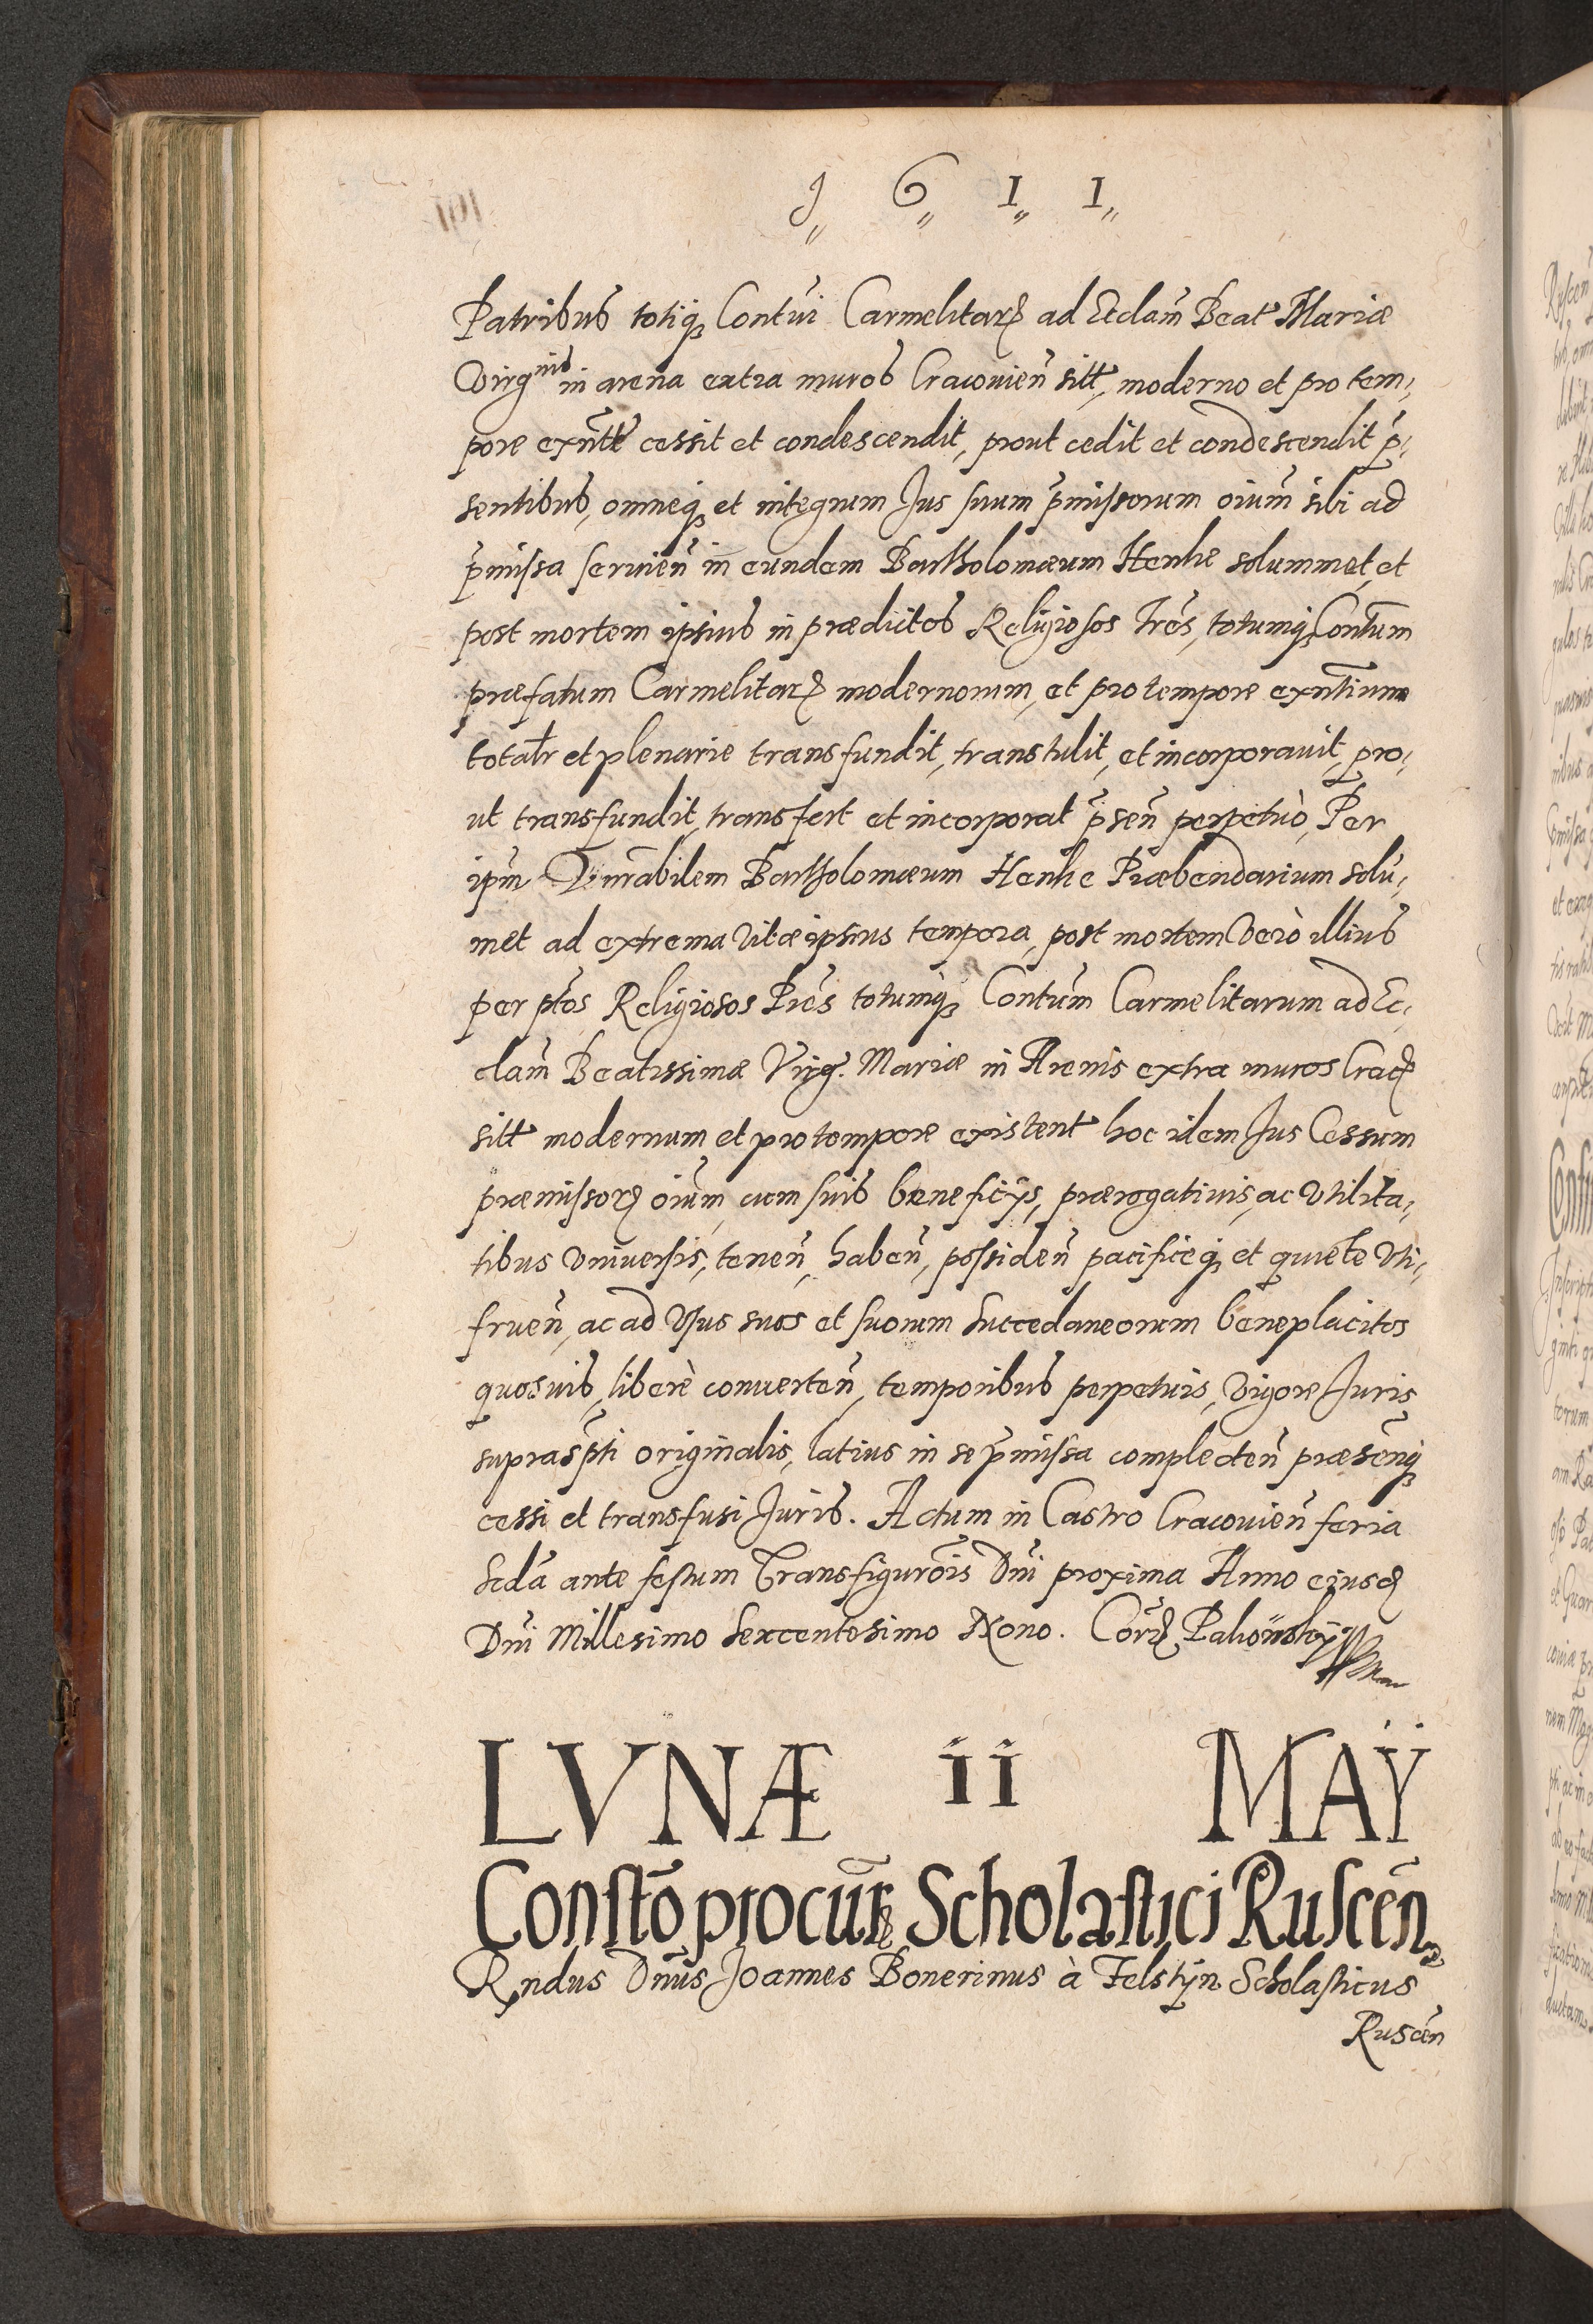 1 6 1 1
Patribus totiq₃ Contui Carmelitarꝝ ad Ecclam̃ Beat Mariæ
Virgⁿⁱˢ in arena extra muros Cracouien̄ sitt, moderno et pro tem,
pore exn̄tt cessit et condescendit, prout cedit et condescendit p̄,
sentibus, omneq₃ et integrum Jus suum p̄missorum oium̃ sibi ad
p̄missa seruien̄ in eundem Bartholomæum Henke solummet, et
post mortem ipsius in prædictos Religiosos Prēs, totumq₃ Contum̃
præfatum Carmelitarꝝ modernorum, et pro tempore exn̄tium
totalr et plenarie transfundit, transtulit, et incorporauit, pro,
ut transfundit, transfert et incorporat p̄sen̄ perpetuò, Per
ipm̄ Vnrabilem Bartholomæum Henke Præbendarium solu,
met ad extrema vitæ ipsius tempora, post mortem verò illius
per ptos Religiosos Prēs totumq₃ Contum̃ Carmelitarum ad Ec,
clam̃ Beatissimæ Virg. Mariæ in Arenis extra muros Cracꝭ
sitt modernum et pro tempore existent hoc idem Jus Cessum
præmissorꝝ oium̃, cum suis beneficijs, prærogatiuis, ac vtilita,
tibus vniuersis, tenen̄, haben̄, possiden̄ pacificeq₃ et quiete vti,
fruen̄, ac ad vsus suos et suorum Succedaneorum beneplacitos
quosuis, liberè conuerten̄, temporibus perpetuis, vigore Juris
suprasp̄ti originalis, latius in se p̄missa complecten̄ præsenq₃
cessi et transfusi Juris. Actum in Castro Cracouien̄ feria
Scdā ante festum Transfigurōis Dn̄i proxima Anno eiusdꝭ
Dn̄i Millesimo Sexcentesimo Nono.
LVNÆ 11 MAŸ
Constō procurꝭ Scholastici Ruscēn
Rndus Dn̄us Joannes Bonerinus à Felstÿn Scholasticus
Ruscēn